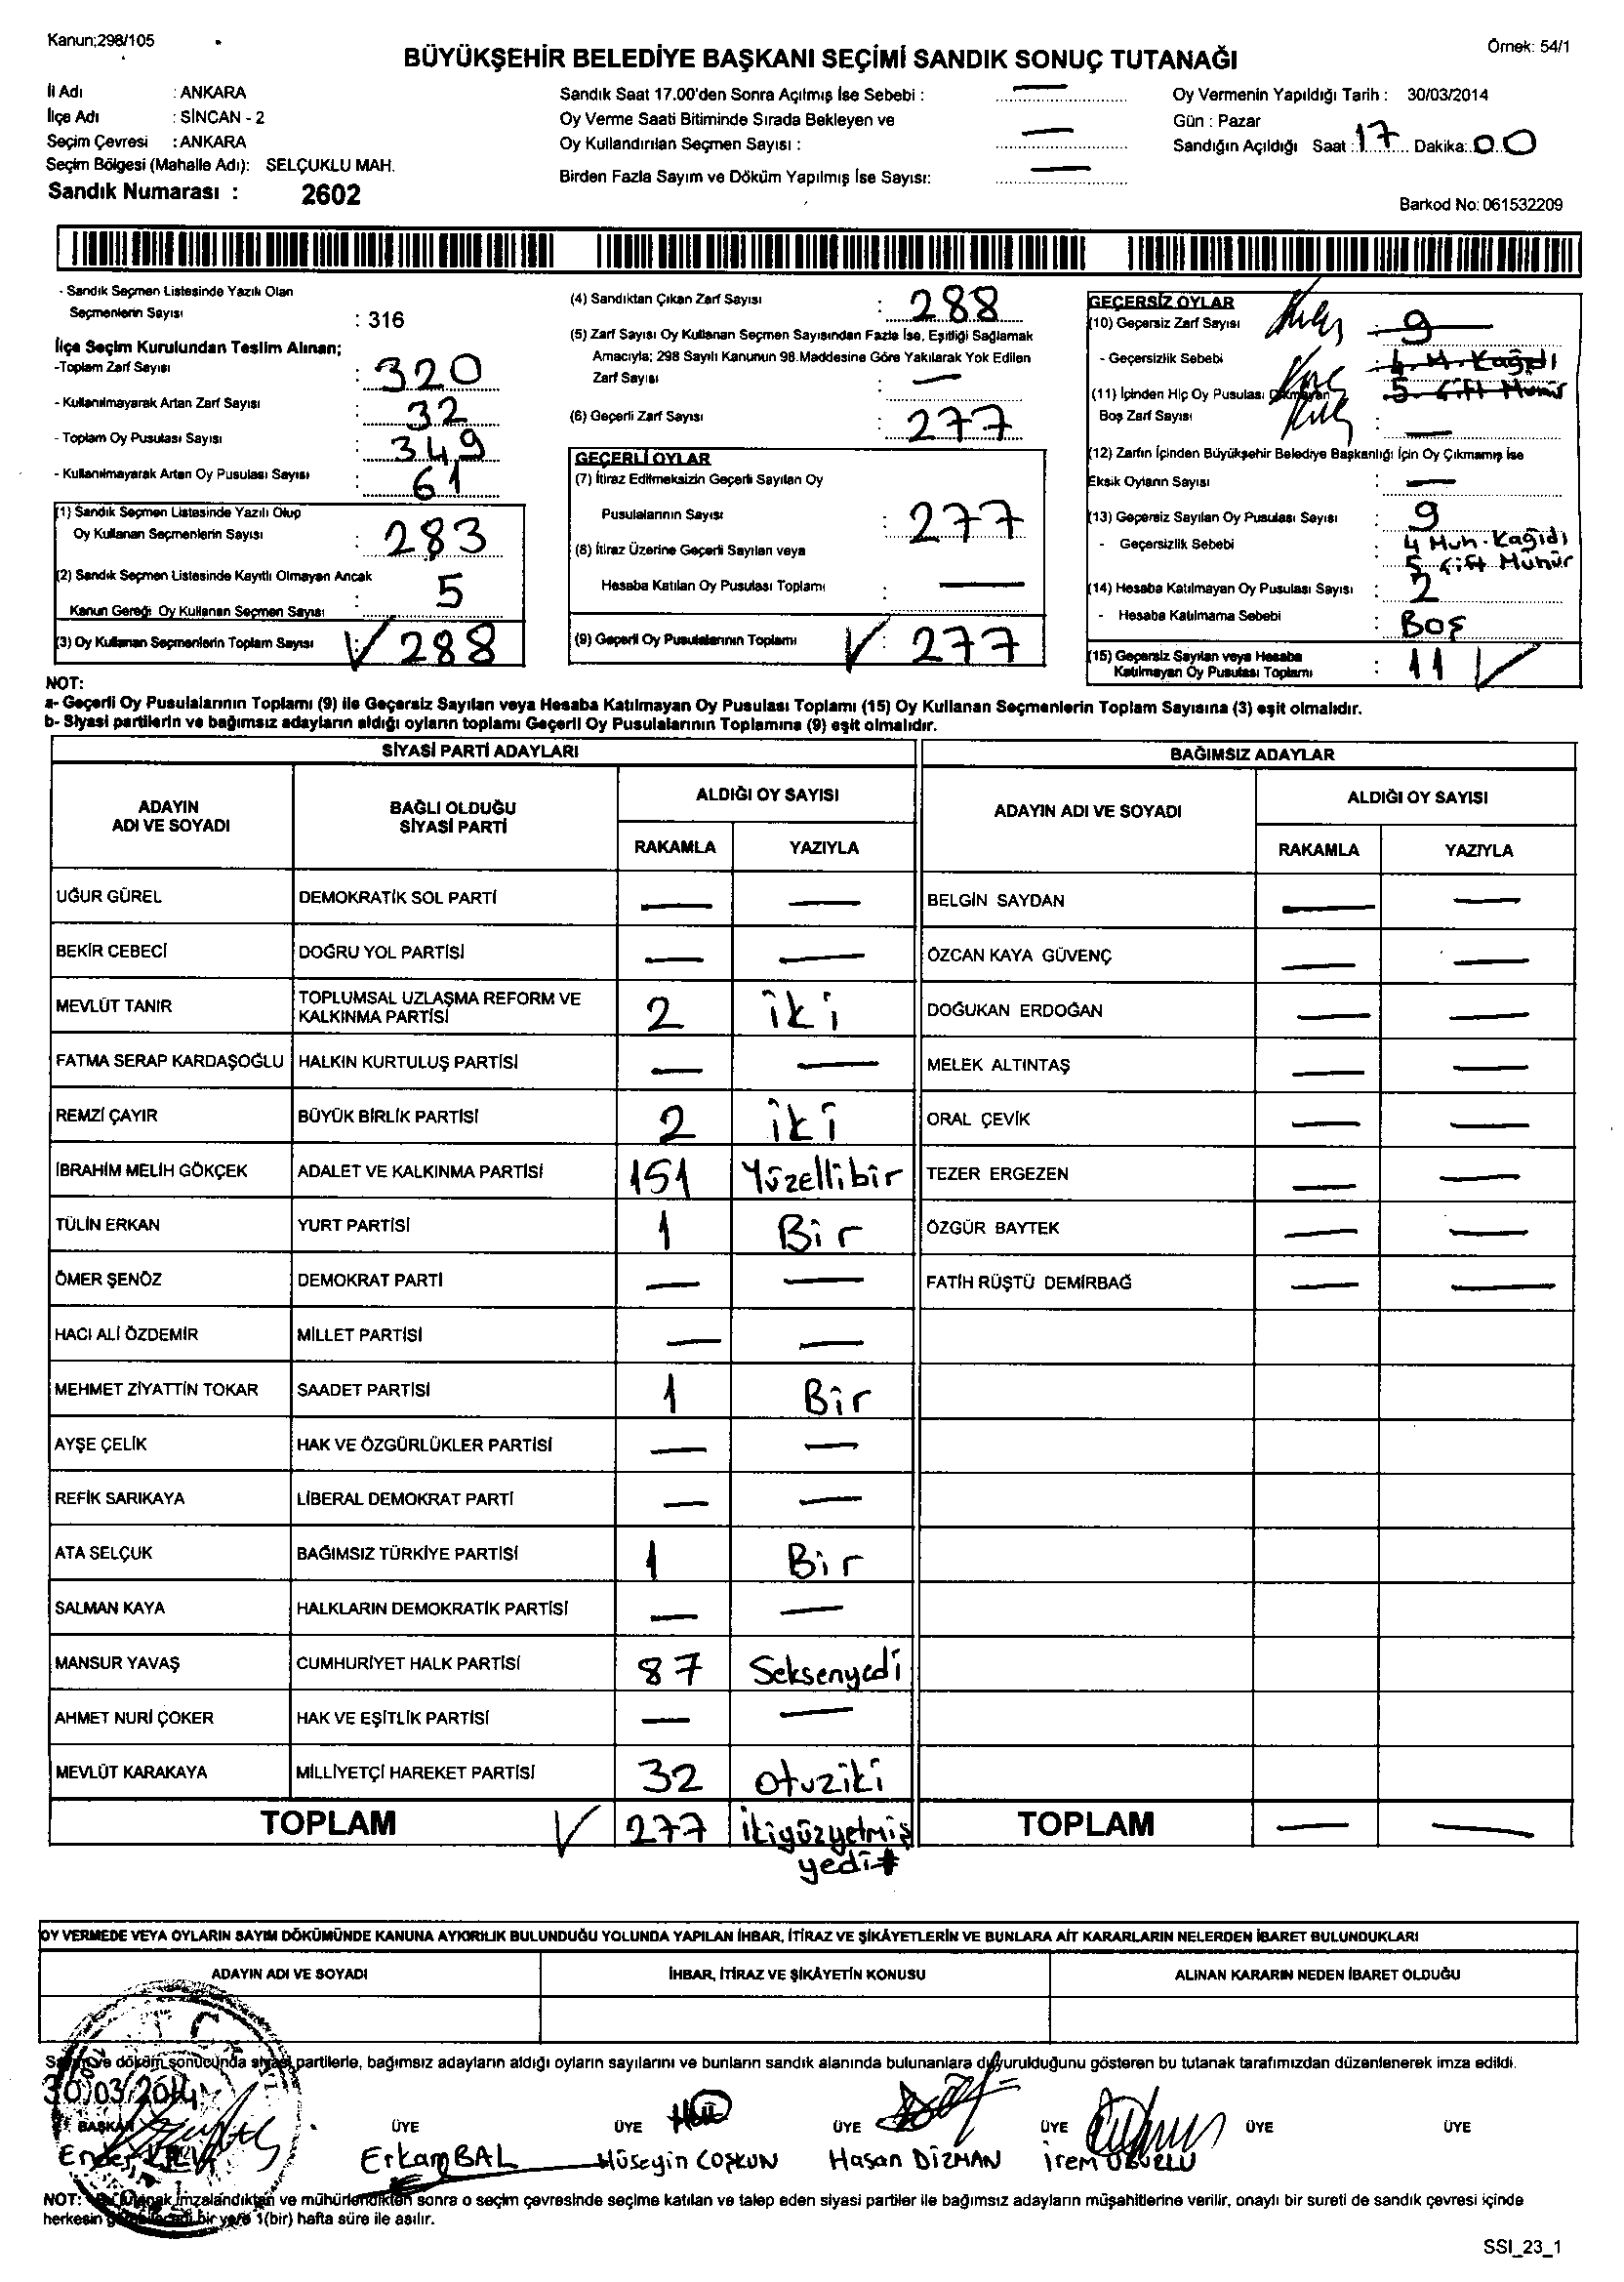 Kanun;298/105
Örnek: 54/1
BÜYÜKŞEHİR BELEDİYE BAŞKANI SEÇİMİ SANDIK SONUÇ TUTANAĞI
İl Adı : ANKARA
İlçe Adı : SİNCAN - 2
Seçim Çevresi : ANKARA
Seçim Bölgesi (Mahalle Adı): SELÇUKLU MAH.
Sandık Numarası : 2602
Sandık Saat 17.00'den Sonra Açılmış İse Sebebi : —
Oy Verme Saati Bitiminde Sırada Bekleyen ve
Oy Kullandırılan Seçmen Sayısı : —
Birden Fazla Sayım ve Döküm Yapılmış İse Sayısı: —
Oy Vermenin Yapıldığı Tarih : 30/03/2014
Gün : Pazar
Sandığın Açıldığı Saat : 17 Dakika: 00
Barkod No: 061532209
- Sandık Seçmen Listesinde Yazılı Olan
Seçmenlerin Sayısı : 316
İlçe Seçim Kurulundan Teslim Alınan;
-Toplam Zarf Sayısı : 320
- Kullanılmayarak Artan Zarf Sayısı : 32
- Toplam Oy Pusulası Sayısı : 349
- Kullanılmayarak Artan Oy Pusulası Sayısı : 61
(1) Sandık Seçmen Listesinde Yazılı Olup
Oy Kullanan Seçmenlerin Sayısı : 283
(2) Sandık Seçmen Listesinde Kayıtlı Olmayan Ancak
Kanun Gereği Oy Kullanan Seçmen Sayısı : 5
(3) Oy Kullanan Seçmenlerin Toplam Sayısı : 288
(4) Sandıktan Çıkan Zarf Sayısı : 288
(5) Zarf Sayısı Oy Kullanan Seçmen Sayısından Fazla İse, Eşitliği Sağlamak
Amacıyla; 298 Sayılı Kanunun 98.Maddesine Göre Yakılarak Yok Edilen
Zarf Sayısı : —
(6) Geçerli Zarf Sayısı : 277
GEÇERLİ OYLAR
(7) İtiraz Edilmeksizin Geçerli Sayılan Oy
Pusulalarının Sayısı : 277
(8) İtiraz Üzerine Geçerli Sayılan veya
Hesaba Katılan Oy Pusulası Toplamı : —
(9) Geçerli Oy Pusulalarının Toplamı : 277
GEÇERSİZ OYLAR
(10) Geçersiz Zarf Sayısı 9
- Geçersizlik Sebebi 4 M. Kağıdı
5 Çift Mühür
(11) İçinden Hiç Oy Pusulası Çıkmayan
Boş Zarf Sayısı : —
(12) Zarfın İçinden Büyükşehir Belediye Başkanlığı İçin Oy Çıkmamış İse
Eksik Oyların Sayısı : —
(13) Geçersiz Sayılan Oy Pusulası Sayısı : 9
- Geçersizlik Sebebi : 4 Muh. Kağıdı
5 Çift Mühür
(14) Hesaba Katılmayan Oy Pusulası Sayısı : 2
- Hesaba Katılmama Sebebi : Boş
(15) Geçersiz Sayılan veya Hesaba
Katılmayan Oy Pusulası Toplamı : 11
NOT:
a- Geçerli Oy Pusulalarının Toplamı (9) ile Geçersiz Sayılan veya Hesaba Katılmayan Oy Pusulası Toplamı (15) Oy Kullanan Seçmenlerin Toplam Sayısına (3) eşit olmalıdır.
b- Siyasi partilerin ve bağımsız adayların aldığı oyların toplamı Geçerli Oy Pusulalarının Toplamına (9) eşit olmalıdır.
SİYASİ PARTİ ADAYLARI
ADAYIN ADI VE SOYADI BAĞLI OLDUĞU SİYASİ PARTİ ALDIĞI OY SAYISI
RAKAMLA YAZIYLA
UĞUR GÜREL DEMOKRATİK SOL PARTİ — —
BEKİR CEBECİ DOĞRU YOL PARTİSİ — —
MEVLÜT TANIR TOPLUMSAL UZLAŞMA REFORM VE KALKINMA PARTİSİ 2 iki
FATMA SERAP KARDAŞOĞLU HALKIN KURTULUŞ PARTİSİ — —
REMZİ ÇAYIR BÜYÜK BİRLİK PARTİSİ 2 iki
İBRAHİM MELİH GÖKÇEK ADALET VE KALKINMA PARTİSİ 151 Yüzellibir
TÜLİN ERKAN YURT PARTİSİ 1 Bir
ÖMER ŞENÖZ DEMOKRAT PARTİ — —
HACI ALİ ÖZDEMİR MİLLET PARTİSİ — —
MEHMET ZİYATTİN TOKAR SAADET PARTİSİ 1 Bir
AYŞE ÇELİK HAK VE ÖZGÜRLÜKLER PARTİSİ — —
REFİK SARIKAYA LİBERAL DEMOKRAT PARTİ — —
ATA SELÇUK BAĞIMSIZ TÜRKİYE PARTİSİ 1 Bir
SALMAN KAYA HALKLARIN DEMOKRATİK PARTİSİ — —
MANSUR YAVAŞ CUMHURİYET HALK PARTİSİ 87 Seksenyedi
AHMET NURİ ÇOKER HAK VE EŞİTLİK PARTİSİ — —
MEVLÜT KARAKAYA MİLLİYETÇİ HAREKET PARTİSİ 32 otuziki
TOPLAM 277 ikiyüzyetmiş
yedi
BAĞIMSIZ ADAYLAR
ADAYIN ADI VE SOYADI ALDIĞI OY SAYISI
RAKAMLA YAZIYLA
BELGİN SAYDAN — —
ÖZCAN KAYA GÜVENÇ — —
DOĞUKAN ERDOĞAN — —
MELEK ALTINTAŞ — —
ORAL ÇEVİK — —
TEZER ERGEZEN — —
ÖZGÜR BAYTEK — —
FATİH RÜŞTÜ DEMİRBAĞ — —
TOPLAM — —
OY VERMEDE VEYA OYLARIN SAYIM DÖKÜMÜNDE KANUNA AYKIRILIK BULUNDUĞU YOLUNDA YAPILAN İHBAR, İTİRAZ VE ŞİKÂYETLERİN VE BUNLARA AİT KARARLARIN NELERDEN İBARET BULUNDUKLARI
ADAYIN ADI VE SOYADI İHBAR, İTİRAZ VE ŞİKÂYETİN KONUSU ALINAN KARARIN NEDEN İBARET OLDUĞU
Sayım ve döküm sonucunda siyasi partilerle, bağımsız adayların aldığı oyların sayılarını ve bunların sandık alanında bulunanlara duyurulduğunu gösteren bu tutanak tarafımızdan düzenlenerek imza edildi.
30.03.2014
BAŞKAN ÜYE ÜYE ÜYE ÜYE ÜYE ÜYE
Ender Erkam BAL Hüseyin COŞKUN Hasan DİZMAN İrem
NOT: Bu tutanak imzalandıktan ve mühürlendikten sonra o seçim çevresinde seçime katılan ve talep eden siyasi partiler ile bağımsız adayların müşahitlerine verilir, onaylı bir sureti de sandık çevresi içinde
herkesin bir yere 1(bir) hafta süre ile asılır.
SSI_23_1